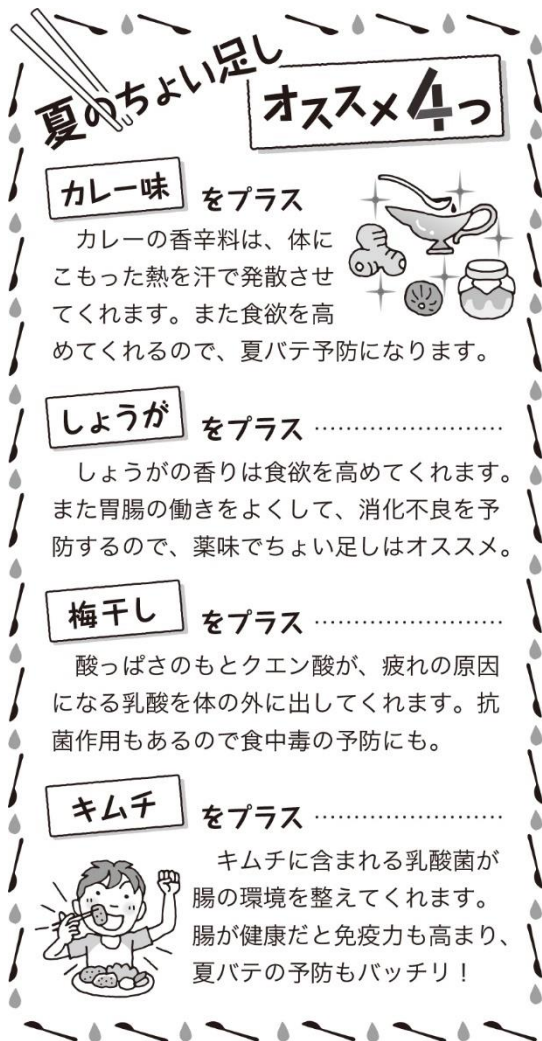 夏のちょい足し
オススメ4つ
カレー味 をプラス
カレーの香辛料は、体に
こもった熱を汗で発散させ
てくれます。また食欲を高
めてくれるので、夏バテ予防になります。
しょうが をプラス ……………………
しょうがの香りは食欲を高めてくれます。
また胃腸の働きをよくして、消化不良を予
防するので、薬味でちょい足しはオススメ。
梅干し をプラス ……………………
酸っぱさのもとクエン酸が、疲れの原因
になる乳酸を体の外に出してくれます。抗
菌作用もあるので食中毒の予防にも。
キムチ をプラス ……………………
キムチに含まれる乳酸菌が
腸の環境を整えてくれます。
腸が健康だと免疫力も高まり、
夏バテの予防もバッチリ！